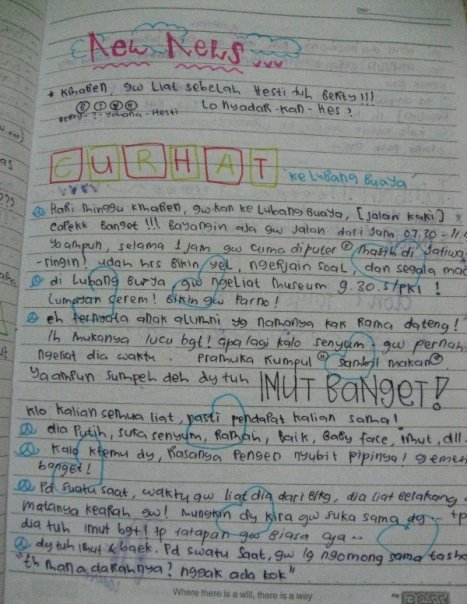 New News...
* Kmaren, gw liat sebelah Hesti tuh Berty!!!
Lo nyadar-kan-Hes?
Berty-?-Yohana-Hesti
CURHAT
"ke Lubang Buaya"
Hari minggu kmaren, gw kan ke Lubang Buaya, [jalan kaki]
capekk Banget!!! Bayangin aja gw jalan dari jam 07.30 - 11.
Yaampun, selama 1 jam gw cuma diputer" masih di Jatiwa
-ringin! udah hrs Bikin yel, ngerjain soal, dan segala mac
di Lubang Buaya gw ngeliat museum g.30.s/pki!
Lumayan serem! Bikin gw Parno!
eh ternyata anak alumni yg namanya kak Rama dateng!
Ih mukanya lucu bgt! apa lagi kalo senyum, gw pernah
ngeliat dia waktu Pramuka kumpul" sambil makan"
Yaampun sumpeh deh dy tuh IMUT BANGET!
klo kalian semua liat, pasti pendapat kalian sama!
dia Putih, suka senyum, Ramah, baik, Baby face, imut, dll.
Kalo ktemu dy, Rasanya Pengen nyubit pipinya! gemes
banget!
Pd suatu saat, waktu gw liat dia dari blkg, dia liat belakang
matanya kearah gw! mungkin dy kira gw suka sama dy... tp
dia tuh imut bgt! tp tatapan gw biasa aja..
dy tuh imut & baek. Pd swatu saat, gw lg ngomong sama tasha
"th mana darahnya? nggak ada kok"
Where there is a will, there is a way